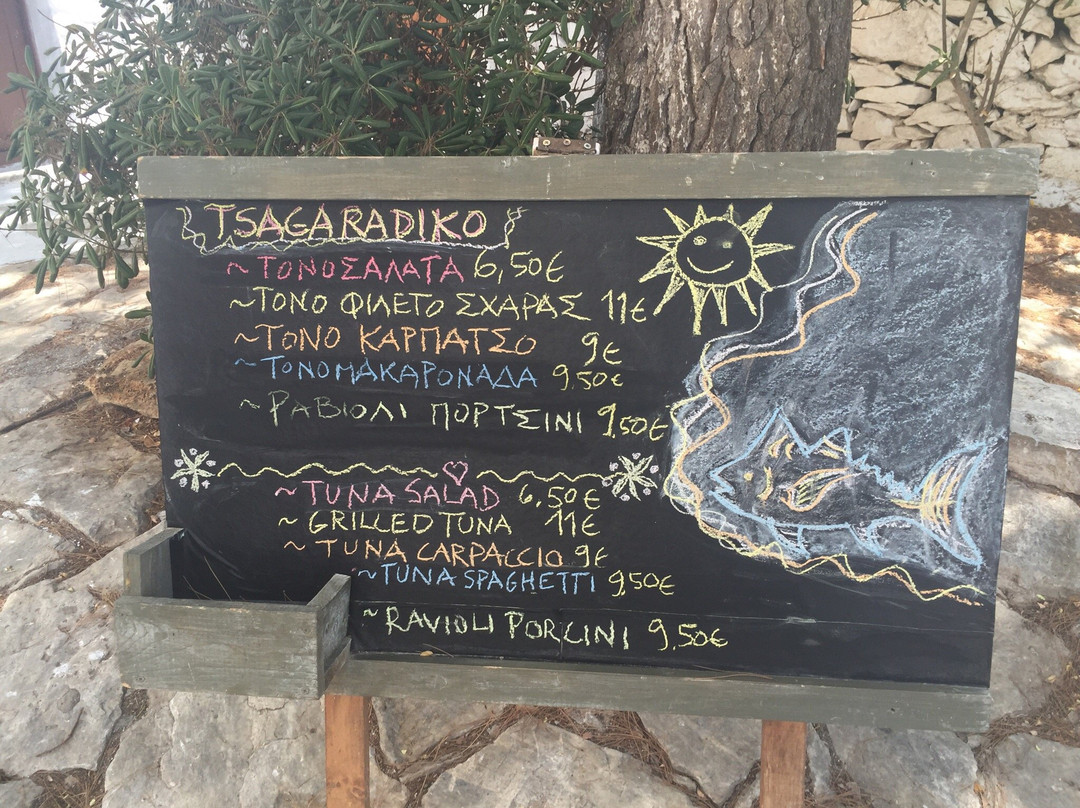 TSAGARADIKO
~ΤΟΝΟΣΑΛΑΤΑ 6,50€
~ΤΟΝΟ ΦΙΛΕΤΟ ΣΧΑΡΑΣ 11€
~ΤΟΝΟ ΚΑΡΠΑΤΣΟ 9€
~ΤΟΝΟΜΑΚΑΡΟΝΑΔΑ 9.50€
~ΡΑΒΙΟΛΙ ΠΟΡΤΣΙΝΙ 9,50€
~TUNA SALAD 6,50€
~GRILLED TUNA 11€
~TUNA CARPACCIO 9€
~TUNA SPAGHETTI 9,50€
~RAVIOLI PORCINI 9,50€